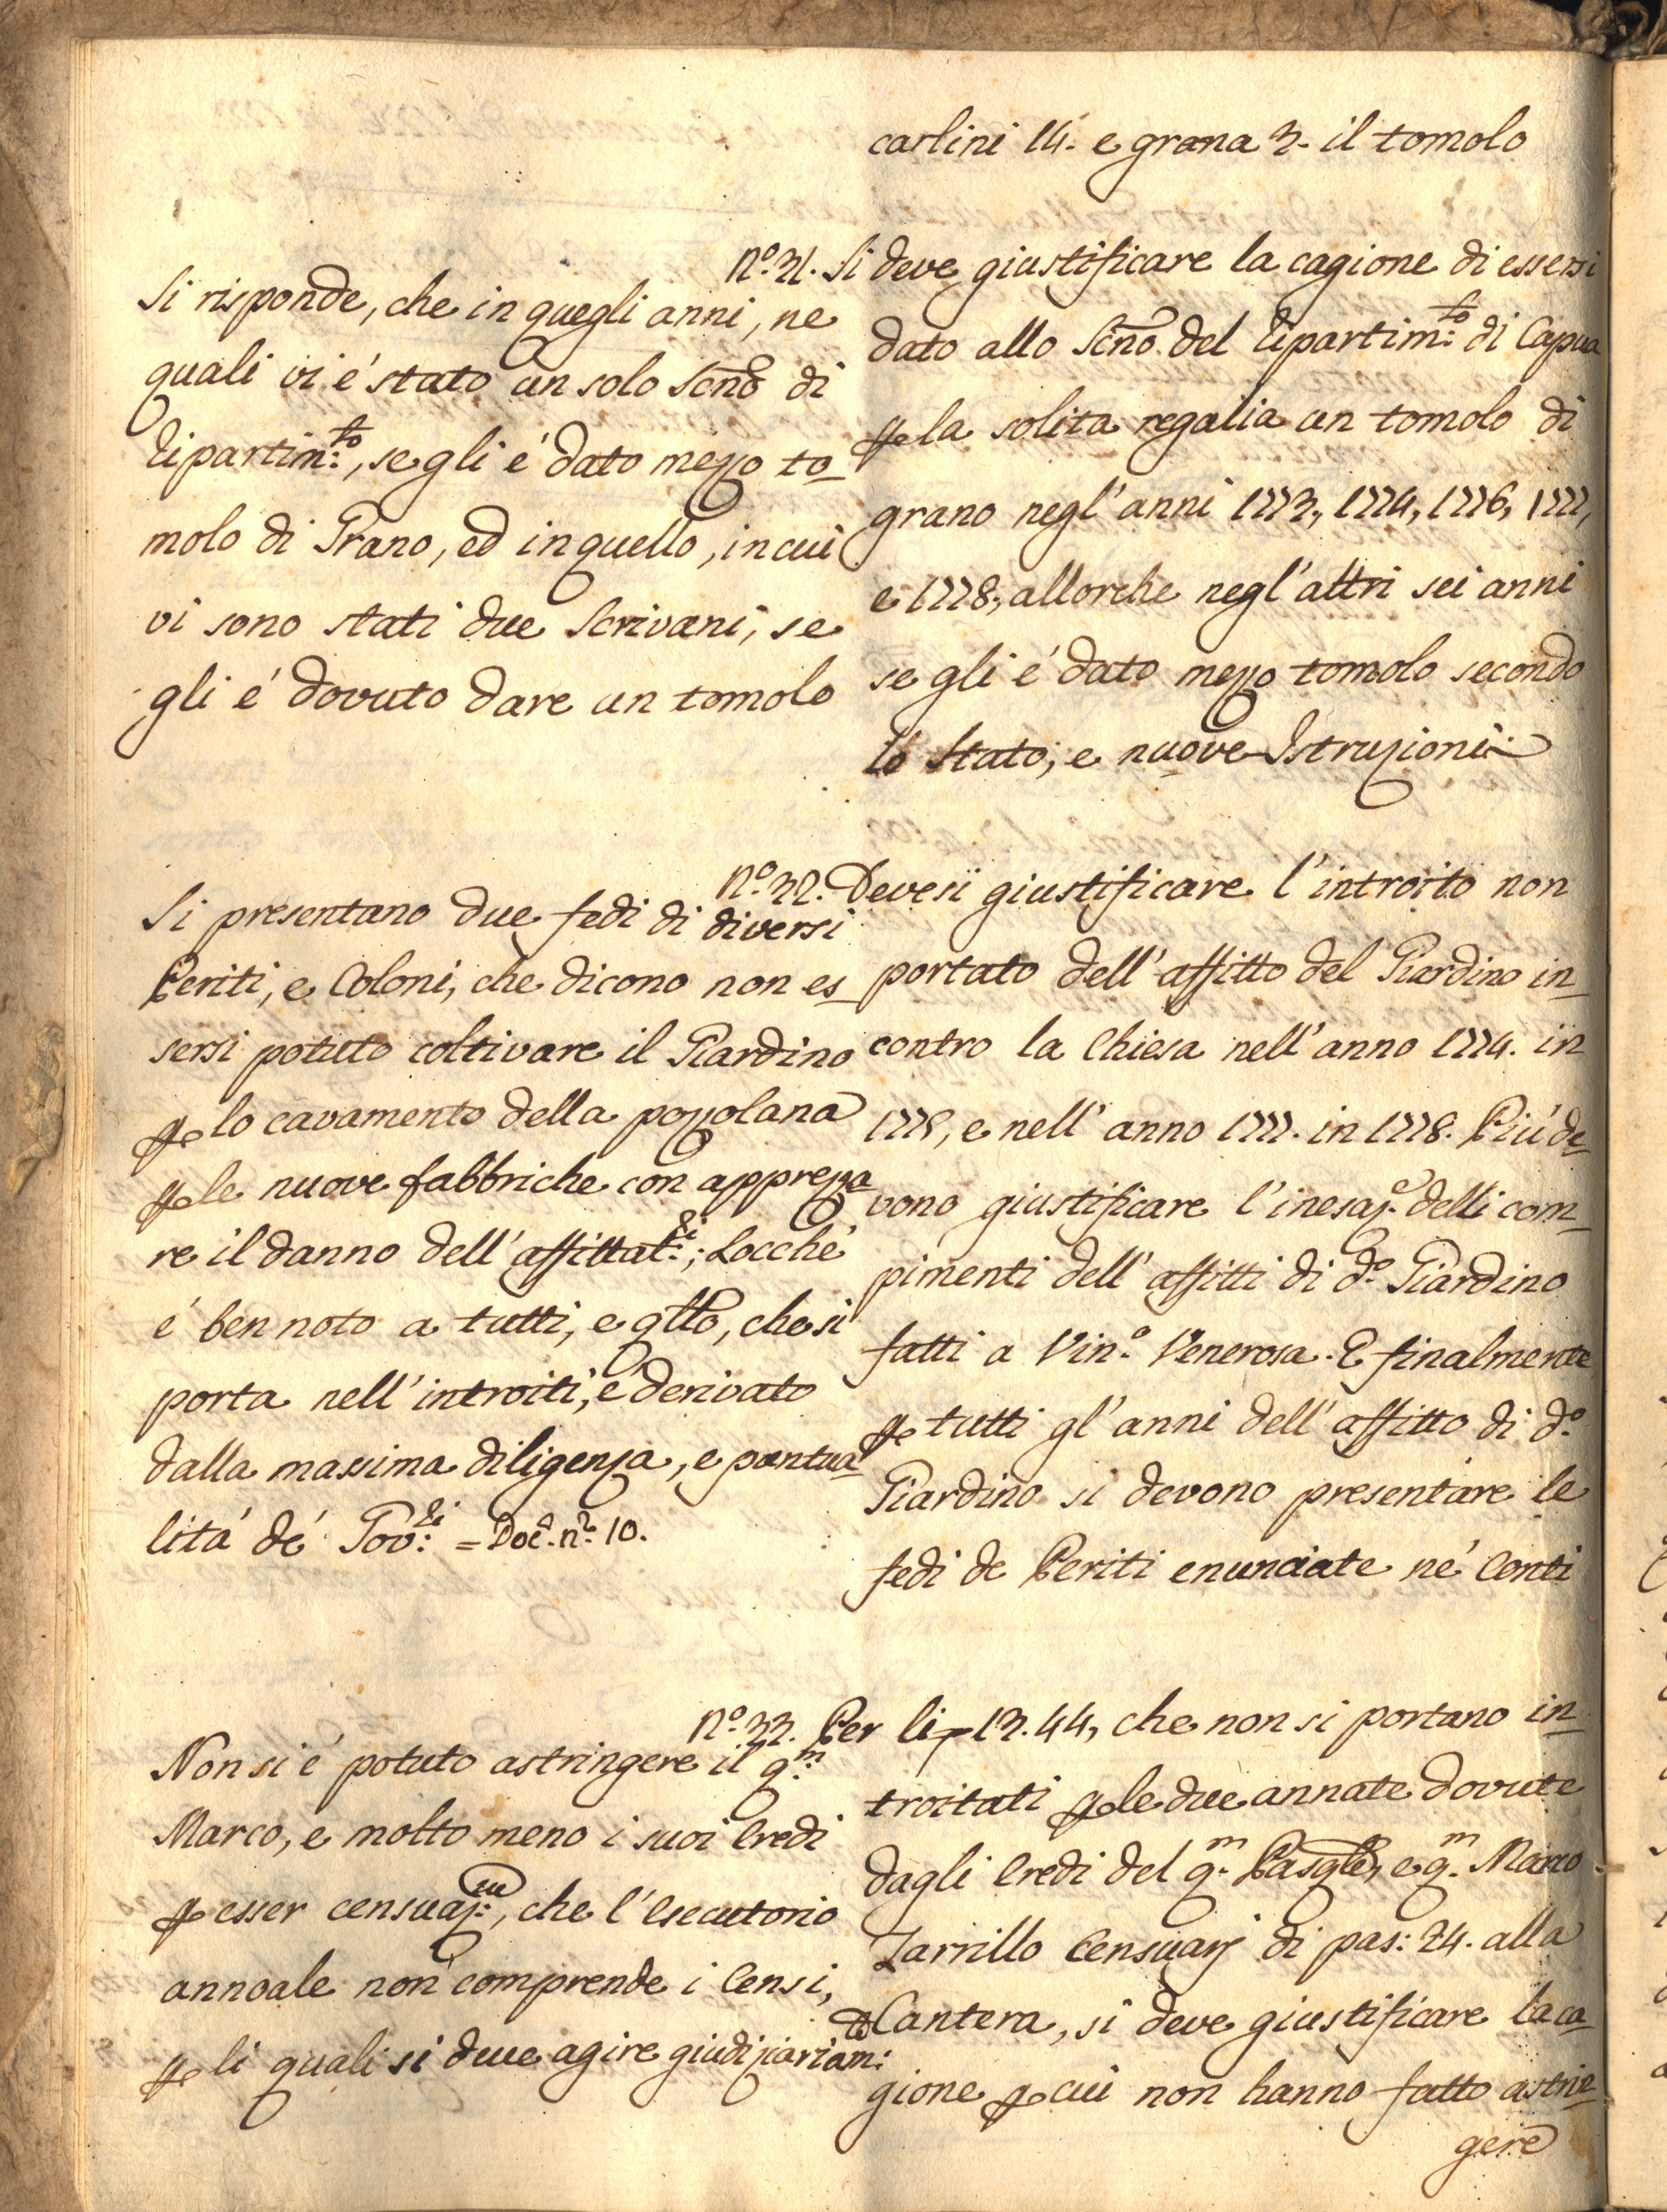 carlini 14. e grana 3. il tomolo
Nº. 31. Si deve giustificare la cagione di essersi
dato allo Scño. del Dipartim:to di Capua
p la solita regalia un tomolo di
grano negl'anni 1773, 1774, 1776, 1777,
e 1778, allorche negl'altri sei anni
se gli é dato mezzo tomolo secondo
lo Stato, e nuove Istruzioni
Si risponde, che in quegli anni, ne
quali vi é stato un solo Scño di
Dipartim:to, se gli é dato mezzo to_
molo di Grano, ed in quello, in cui
vi sono stati due Scrivani, se
gli é dovuto dare un tomolo
Nº. 32. Devesi giustificare l'introito non
portato dell'affitto del Giardino in_
contro la Chiesa nell'anno 1774. in
1775, e nell'anno 1777. in 1778. Piú de_
vono giustificare l'inesaz.e delli com_
pimenti dell'affitti di d.º Giardino
fatti a Vin.º Venerosa. E finalmente
p tutti gl'anni dell'affitto di d.º
Giardino si devono presentare le
fedi de Periti enunciate né Conti
Si presentano due fedi di diversi
Periti, e Coloni, che dicono non es_
sersi potuto coltivare il Giardino
p lo cavamento della pozzolana
p le nuove fabbriche con apprezza
re il danno dell'affittat:ri; Locché
é ben noto a tutti, e qllo, che si
porta nell'introiti, é derivato
dalla massima diligenza, e pontua_
litá dé Gov:ri = Doc. nº. 10.
Nº. 33. Per li 13.44, che non si portano in_
troitati p le due annate dovute
dagli Eredi del q.m Pasqle, e q.m Marco
Zarrillo Censuarj di pas: 24. alla
Cantera, si deve giustificare la ca_
gione p cui non hanno fatto astrin_
gere
Non si é potuto astringere il q:m
Marco, e molto meno i suoi Eredi
p esser censuaz:ni, che l'Esecutorio
annoale non comprende i Censi,
p li quali si deve agire giudiziariam:to